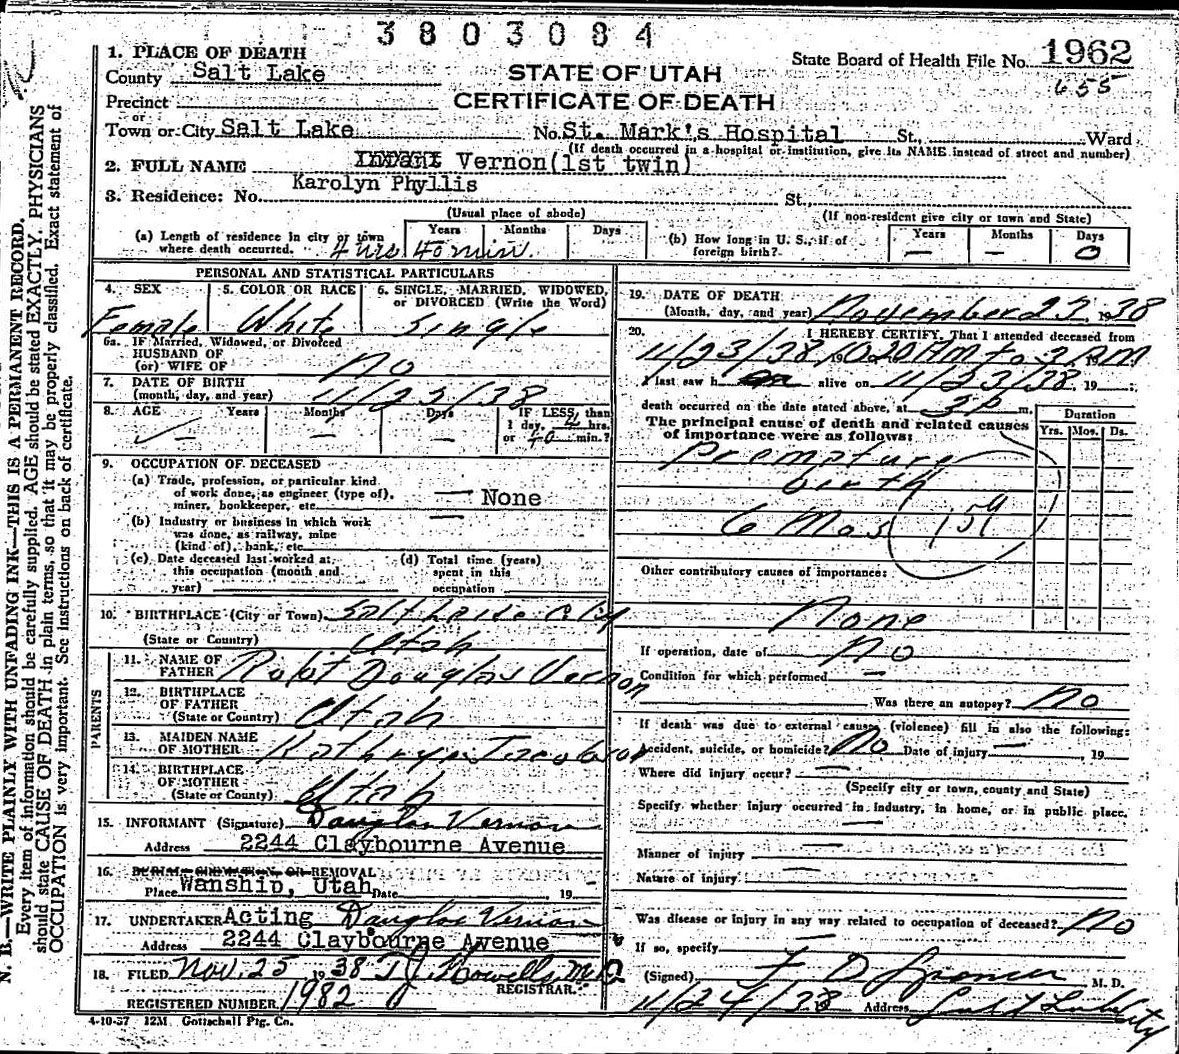 3803084
1. PLACE OF DEATH
County Salt Lake
STATE OF UTAH
State Board of Health File No. 1962
655
Precinct
CERTIFICATE OF DEATH
or
Town or City Salt Lake No. St. Mark's Hospital St., Ward
(If death occurred in a hospital or institution, give its NAME instead of street and number)
2. FULL NAME Infant Vernon(1st twin)
Karolyn Phyllis
3. Residence: No. St.,
(Usual place of abode) (If non-resident give city or town and State)
(a) Length of residence in city or town where death occurred. Years Months Days 4 hrs 40 min.
(b) How long in U. S., if of foreign birth? Years — Months — Days 0
PERSONAL AND STATISTICAL PARTICULARS
4. SEX 5. COLOR OR RACE 6. SINGLE, MARRIED, WIDOWED, or DIVORCED (Write the Word)
Female White Single
6a. IF Married, Widowed, or Divorced
HUSBAND OF
(or) WIFE OF no
7. DATE OF BIRTH
(month, day, and year) 11/23/38
8. AGE Years Months Days IF LESS than
— — — 1 day, 4 hrs.
or 40 min.?
9. OCCUPATION OF DECEASED
(a) Trade, profession, or particular kind
of work done, as engineer (type of),
miner, bookkeeper, etc. — None
(b) Industry or business in which work —
was done, as railway, mine
(kind of), bank, etc.
(c) Date deceased last worked at
this occupation (month and
year)
(d) Total time (years)
spent in this
occupation
10. BIRTHPLACE (City or Town) Salt Lake City
(State or Country) Utah
PARENTS
11. NAME OF
FATHER Robt Douglas Vernon
12. BIRTHPLACE
OF FATHER
(State or Country) Utah
13. MAIDEN NAME
OF MOTHER Kathryn Jacobson
14. BIRTHPLACE
OF MOTHER
(State or Country) Utah
15. INFORMANT (Signature) Douglas Vernon
Address 2244 Claybourne Avenue
16. BURIAL, CREMATION, OR REMOVAL
Place Wanship, Utah Date , 19 –
17. UNDERTAKER Acting Douglas Vernon
Address 2244 Claybourne Avenue
18. FILED Nov. 25 1938 T J Howells, M.D
REGISTRAR.
REGISTERED NUMBER 1982
4-10-37 12M Gottschall Ptg. Co.
19. DATE OF DEATH
(Month, day, and year) November 23, 1938
20. I HEREBY CERTIFY, That I attended deceased from
11/23/38, 19
I last saw h alive on 11/23/38, 19 ;
death occurred on the date stated above, at 3 P m.
The principal cause of death and related causes
of importance were as follows:
Duration
Yrs. Mos. Ds.
Premature
birth
6 Mos 159
Other contributory causes of importance:
None
If operation, date of no
Condition for which performed —
Was there an autopsy? no
If death was due to external causes (violence) fill in also the following:
Accident, suicide, or homicide? No Date of injury — , 19
Where did injury occur? —
(Specify city or town, county and State)
Specify whether injury occurred in industry, in home, or in public place.
—
Manner of injury —
Nature of injury —
Was disease or injury in any way related to occupation of deceased? No
If so, specify —
(Signed) F D M. D.
11/24/38 Address Salt Lake City
N. B.—WRITE PLAINLY WITH UNFADING INK—THIS IS A PERMANENT RECORD.
Every item of information should be carefully supplied. AGE should be stated EXACTLY. PHYSICIANS
should state CAUSE OF DEATH in plain terms, so that it may be properly classified. Exact statement of
OCCUPATION is very important. See Instructions on back of certificate.